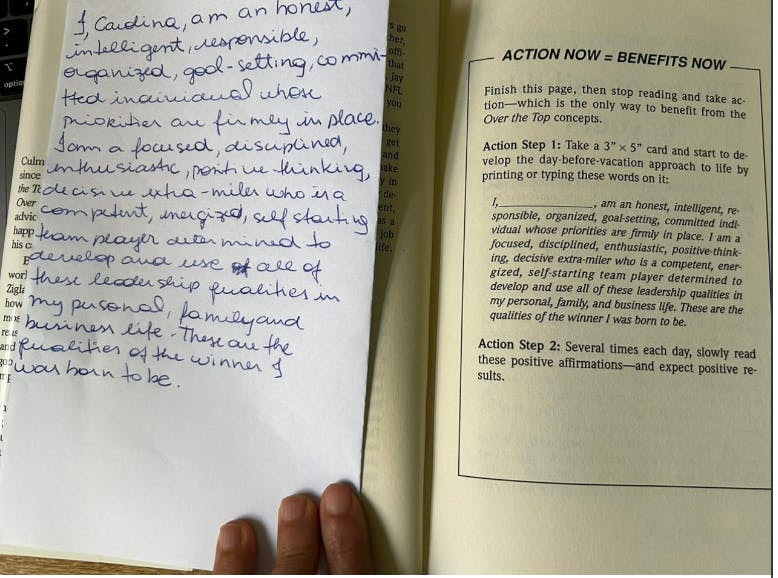 I, Caudina, am an honest,
intelligent, responsible,
organized, goal-setting, commi-
tted individual whose
priorities are firmly in place.
I am a focused, disciplined,
enthusiastic, positive thinking,
decisive extra-miler who is a
competent, energized, self starting
team player determined to
develop and use of all of
these leadership qualities in
my personal, family and
business life. These are the
qualities of the winner I
was born to be.
Culm
since
the To
Over
advic
happ
his c
worl
Zigla
how
mos
and
s go
her,
offi-
that
Jay
NFL
you
they
get
and
ake
y in
de-
ent,
as a
job
life.
ACTION NOW = BENEFITS NOW
Finish this page, then stop reading and take ac-
tion—which is the only way to benefit from the
Over the Top concepts.
Action Step 1: Take a 3" × 5" card and start to de-
velop the day-before-vacation approach to life by
printing or typing these words on it:
I,____________, am an honest, intelligent, re-
sponsible, organized, goal-setting, committed indi-
vidual whose priorities are firmly in place. I am a
focused, disciplined, enthusiastic, positive-think-
ing, decisive extra-miler who is a competent, ener-
gized, self-starting team player determined to
develop and use all of these leadership qualities in
my personal, family, and business life. These are the
qualities of the winner I was born to be.
Action Step 2: Several times each day, slowly read
these positive affirmations—and expect positive re-
sults.
option